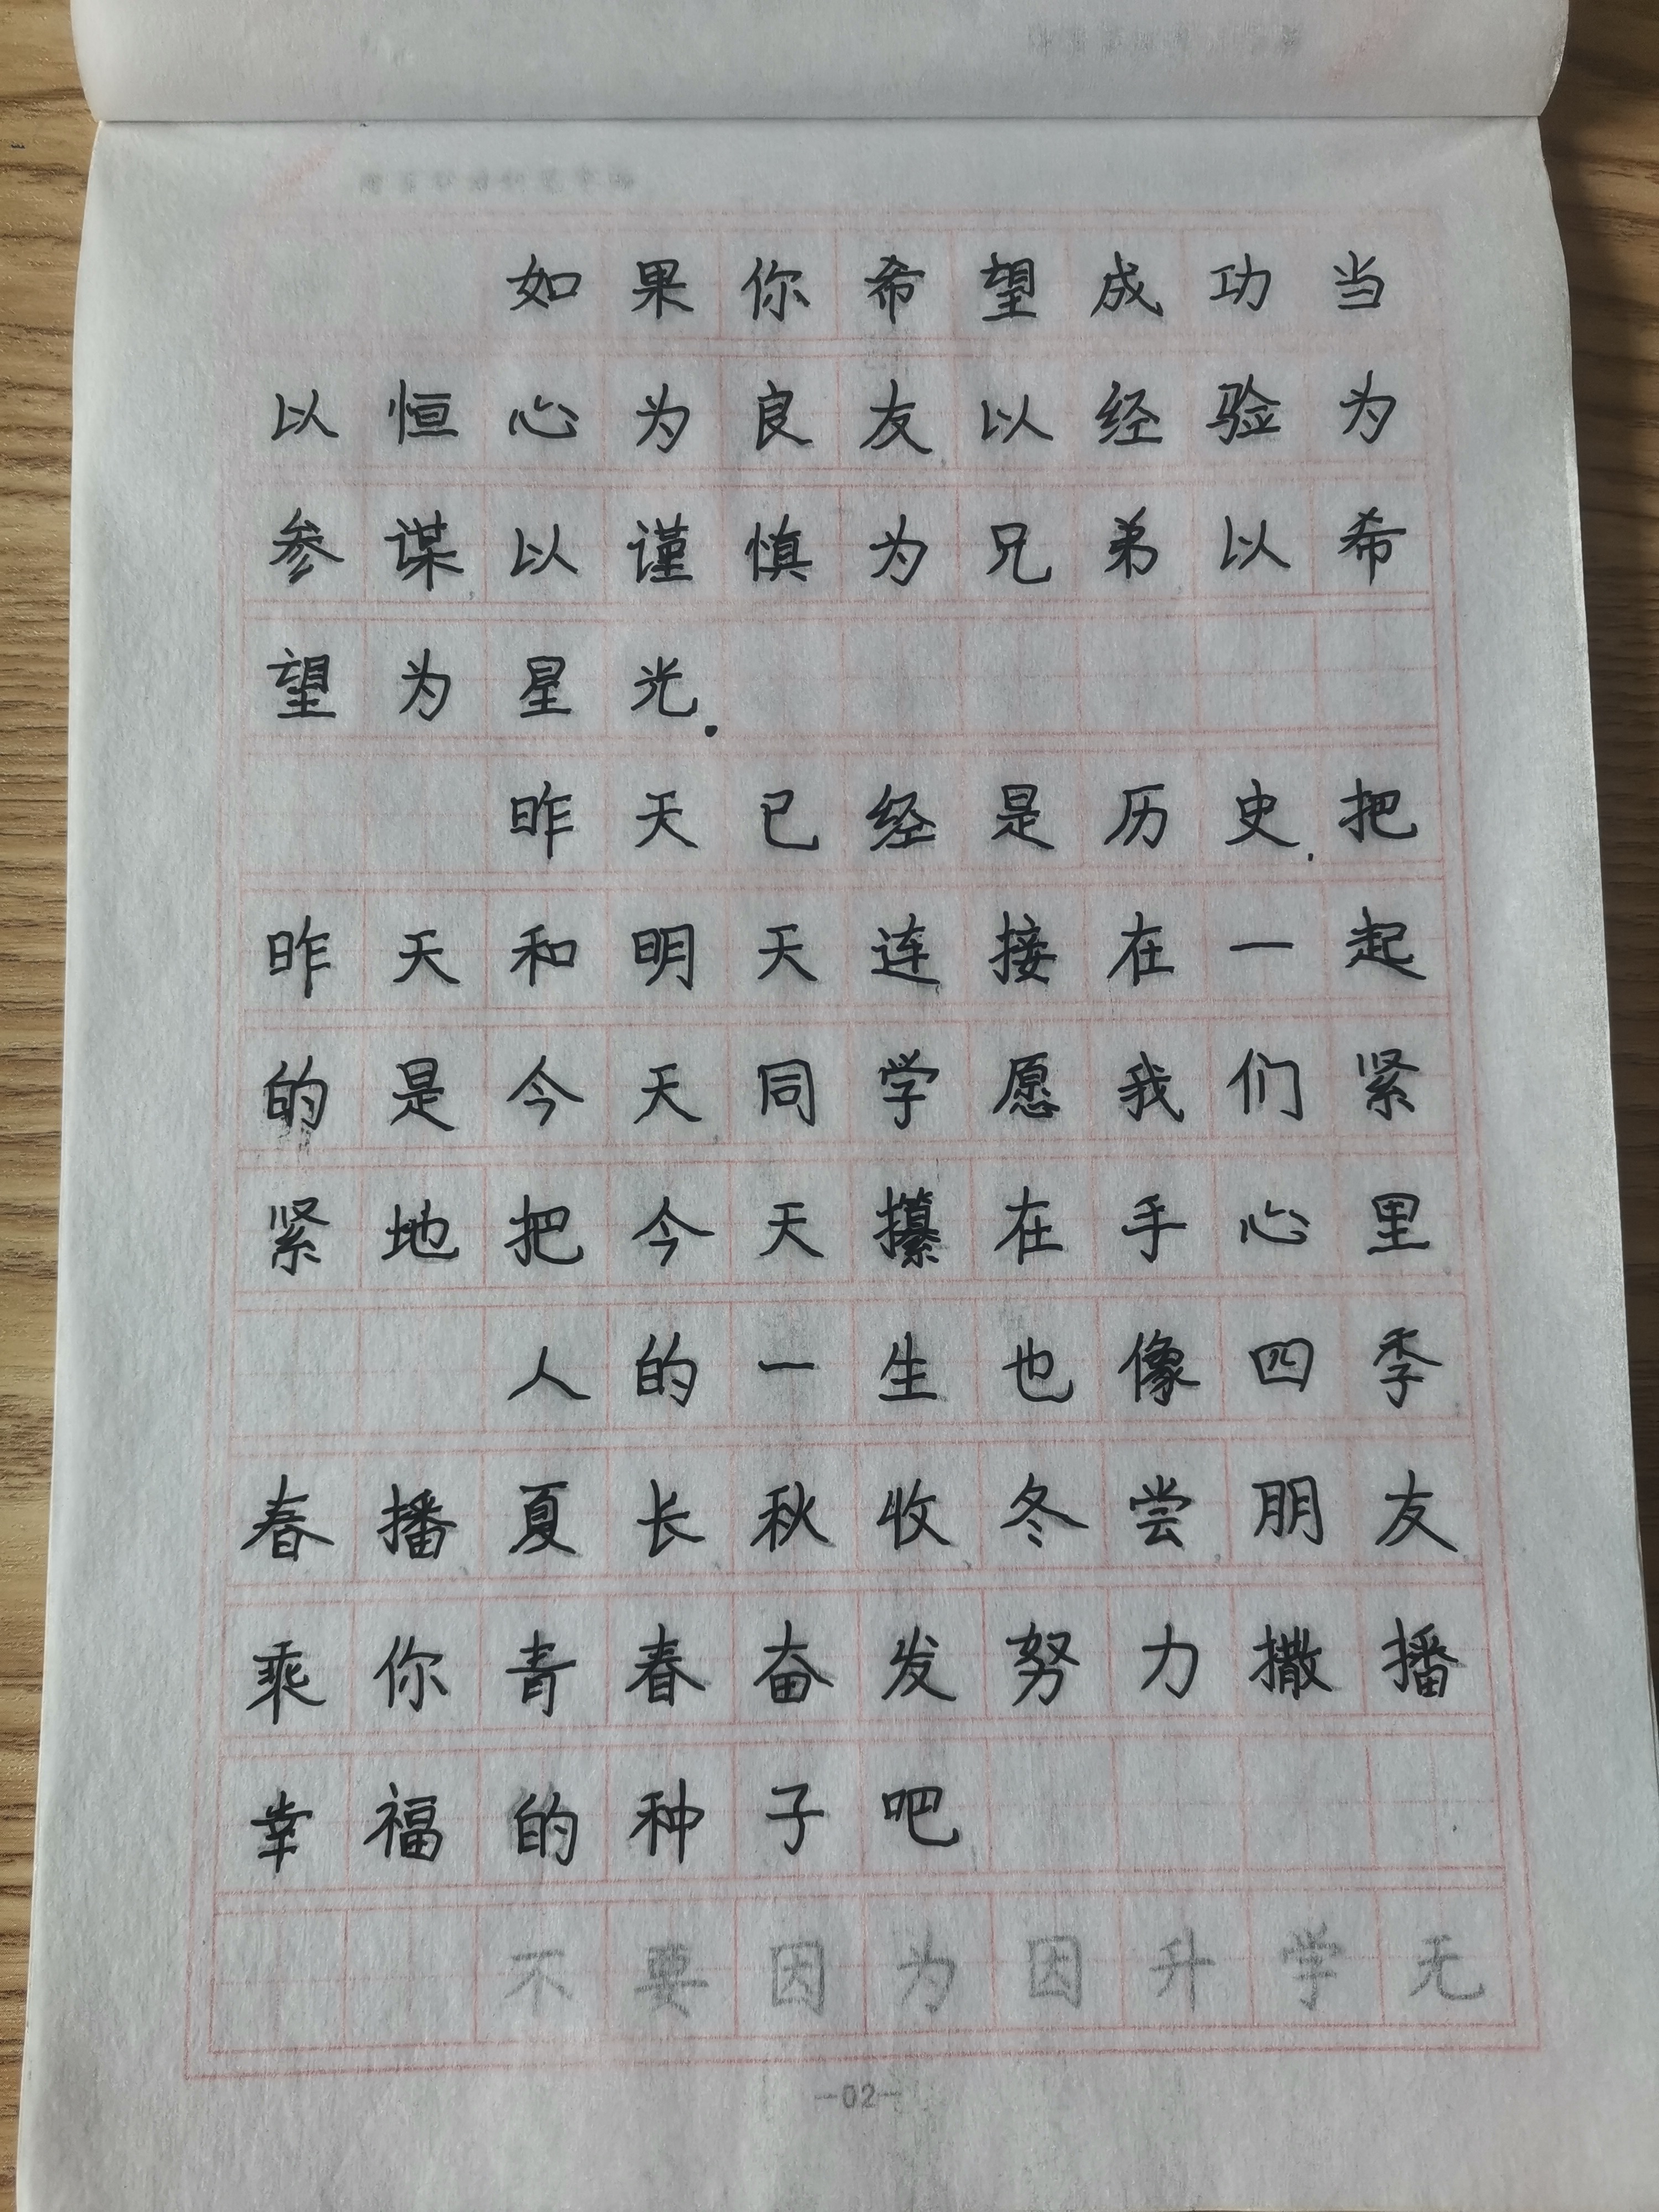 如果你希望成功当
以恒心为良友以经验为
参谋以谨慎为兄弟以希
望为星光.
昨天已经是历史,把
昨天和明天连接在一起
的是今天同学愿我们紧
紧地把今天攥在手心里
人的一生也像四季
春播夏长秋收冬尝朋友
乘你青春奋发努力撒播
幸福的种子吧
不要因为因升学无
—02—